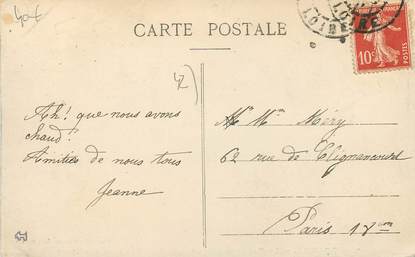 CARTE POSTALE
LOIRE
LOIRE
10c
Ah! que nous avons
chaud!
Amitiés de nous tous
Jeanne
Mr Mme Méry
62 rue de Clignancourt
Paris 18eme